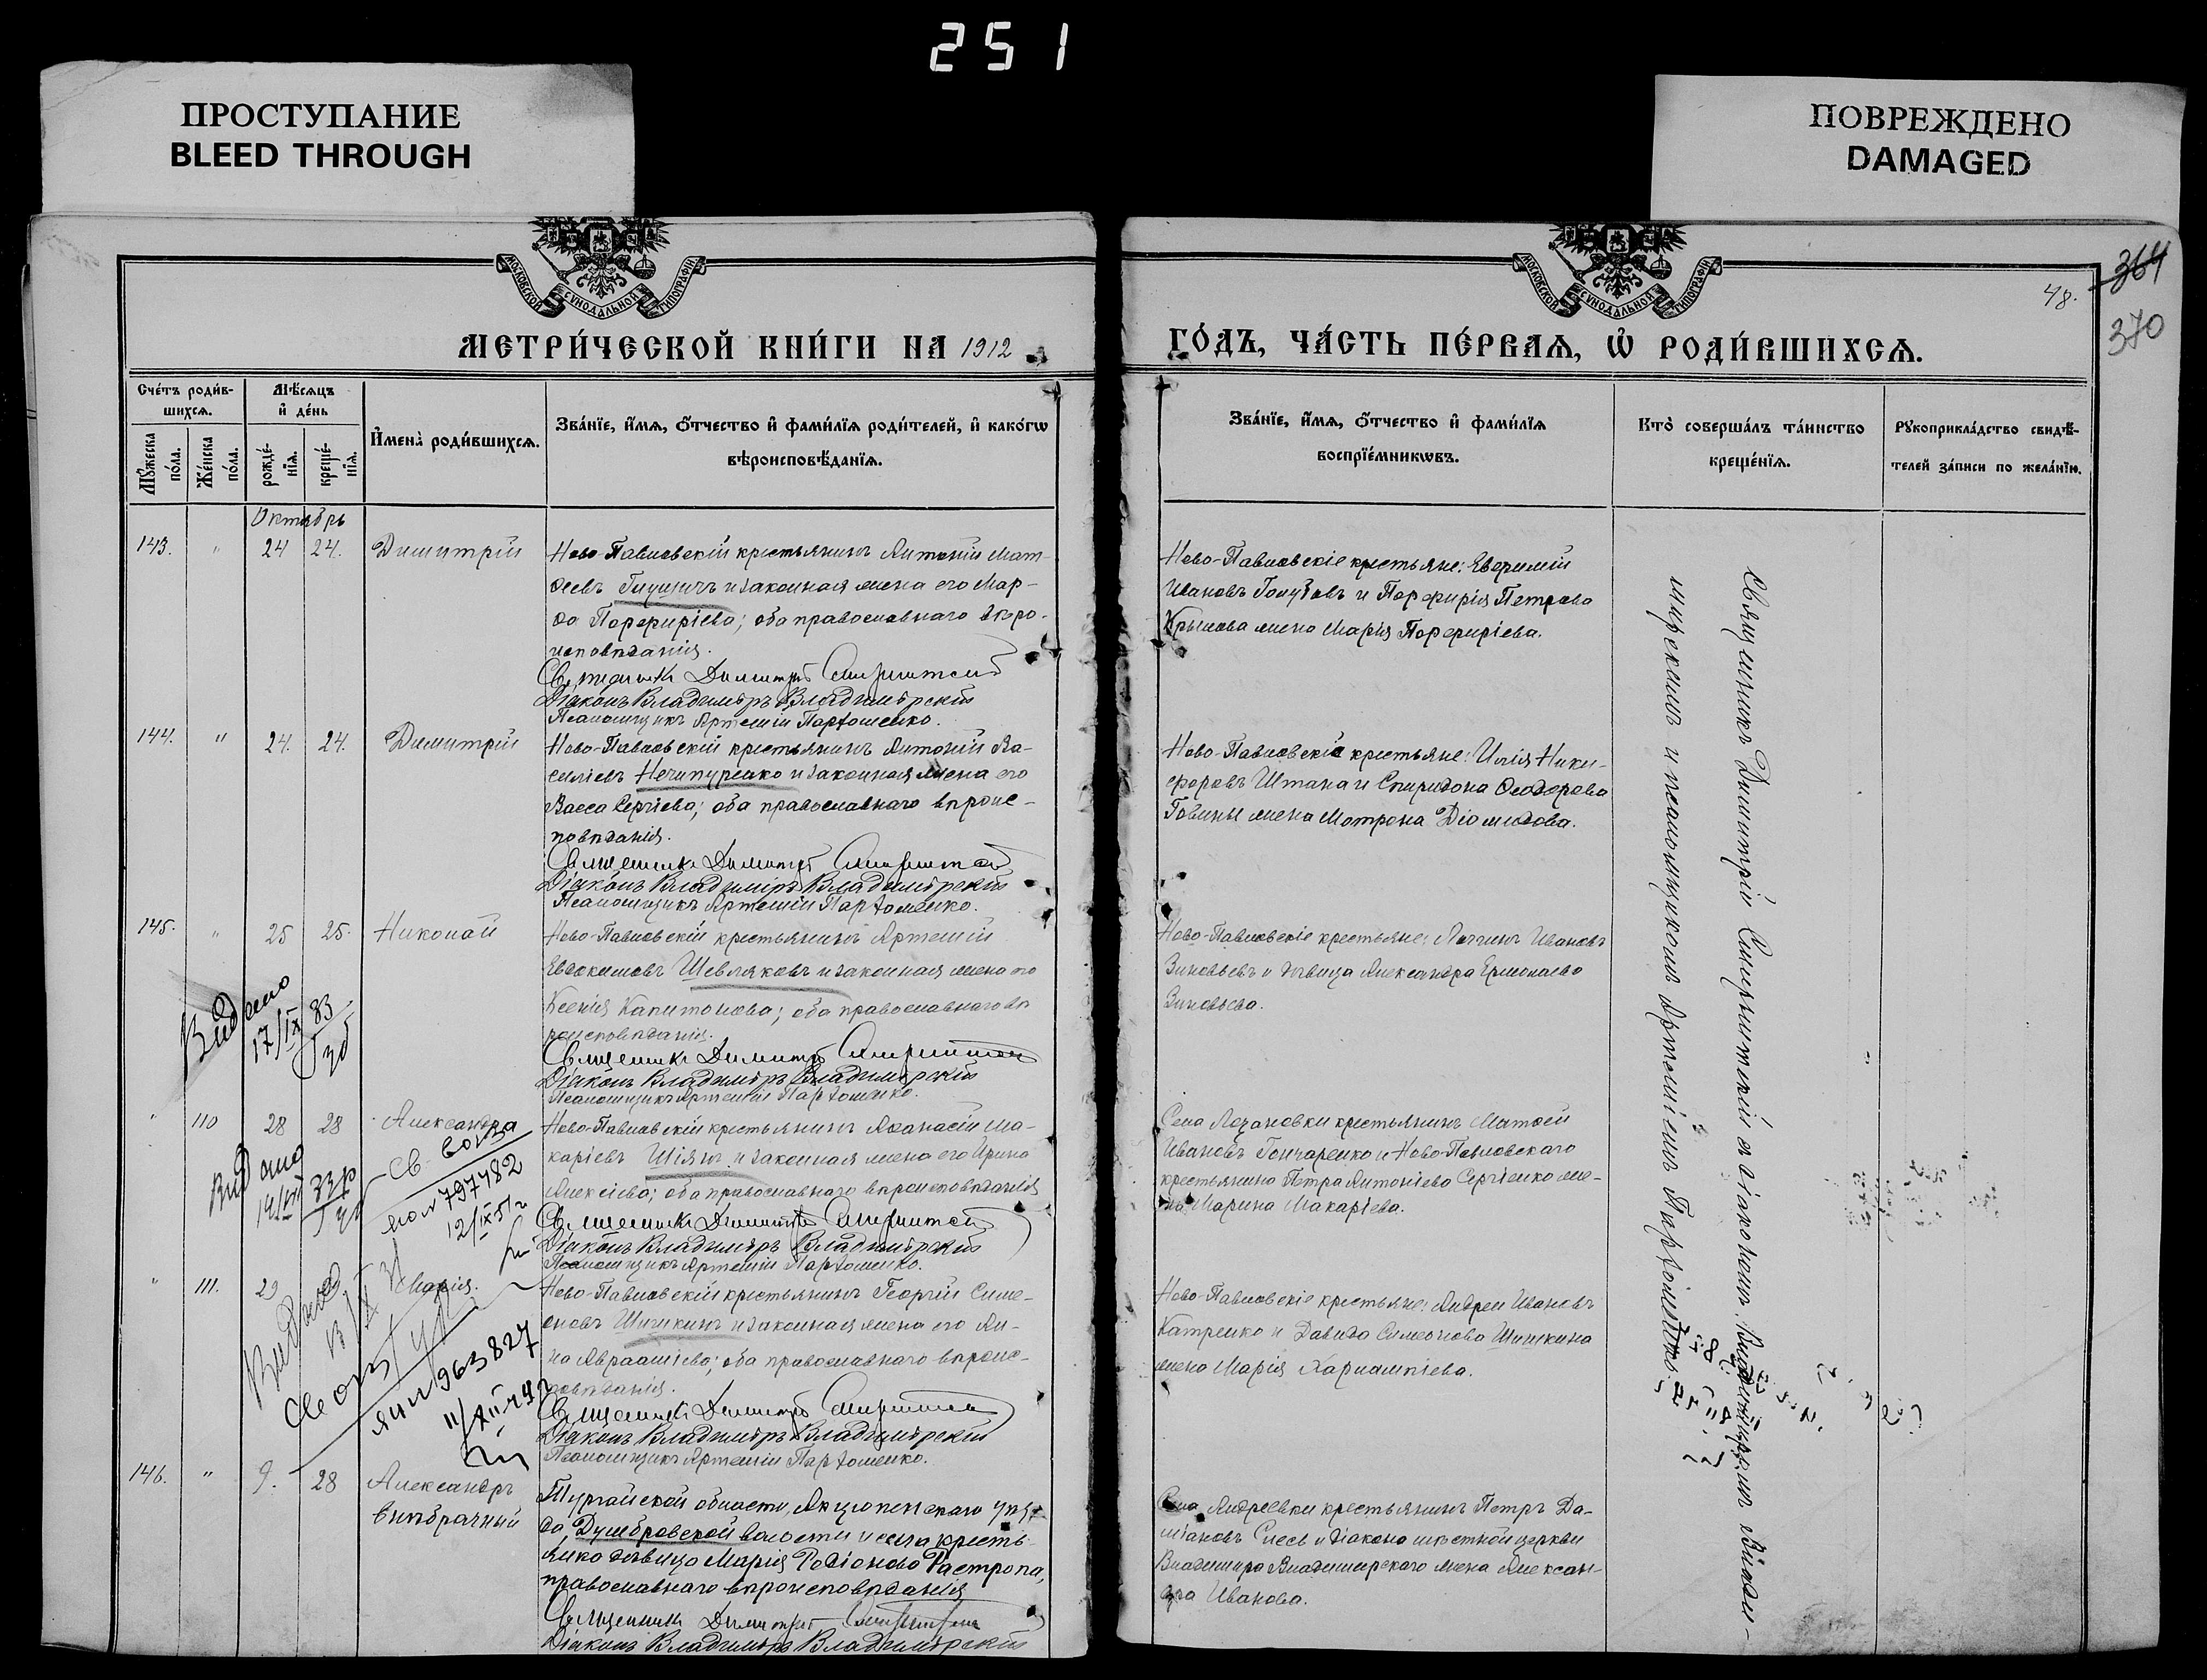 251
ПРОСТУПАНИЕ
BLEED THROUGH
ПОВРЕЖДЕНО
DAMAGED
МОСКОВСКОЙ СѴНОДАЛЬНОЙ ТИПОГРАФІИ
МОСКОВСКОЙ СѴНОДАЛЬНОЙ ТИПОГРАФІИ
364
48.
370
МЕТРИ́ЧЕСКОЙ КНИ́ГИ НА 1912
ГО́ДЪ, ЧА́СТЬ ПЕ́РВАѦ, Ѡ҆ РОДИ́ВШИХСѦ.
Сче́тъ роди́в-
шихсѧ.
Мѣ́сѧцъ
и҆ де́нь
Мꙋ́жеска
по́ла.
Же́нска
по́ла.
рожде́-
нїѧ.
креще́-
нїѧ.
И҆мена̀ роди́вшихсѧ.
Зва́нїе, и҆́мѧ, ѻ҆́тчество и҆ фами́лїѧ роди́телей, и҆ како́гѡ
вѣроисповѣ́данїѧ.
Зва́нїе, и҆́мѧ, ѻ҆́тчество и҆ фами́лїѧ
воспрїе́мникѡвъ.
Кто̀ соверша́лъ та́инство
креще́нїѧ.
Рꙋкоприкла́дство свидѣ́-
телей за́писи по жела́нїю.
Октябрь
143. " 24 24. Димитрій
Ново-Павловскій крестьянинъ Антоній Мат-
ѳеевъ Глущичъ и законная жена его Мар-
ѳа Порфиріева; оба православнаго вѣро-
исповѣданія.
Священникъ Димитрій
Діаконъ Владиміръ Владимірскій
Псаломщикъ Артемій Парѳоменко.
Ново-Павловскіе крестьяне: Евфимій
Ивановъ Голубовъ и Порфирія Петрова
Крылова жена Марія Порфиріева.
144. " 24. 24. Димитрій
Ново-Павловскій крестьянинъ Антоній Ва-
силіевъ Нечипуренко и законная жена его
Васса Сергіева; оба православнаго вѣроис-
повѣданія.
Священникъ Димитрій
Діаконъ Владиміръ Владимірскій
Псаломщикъ Артемій Парѳоменко.
Ново-Павловскіе крестьяне: Илія Ники-
форовъ Штана и Спиридона Ѳеодорова
Говины жена Матрона Діомидова.
145. " 25 25. Николай
Ново-Павловскій крестьянинъ Артемій
Евдокимовъ Шевляковъ и законная жена его
Ксенія Капитонова; оба православнаго вѣ-
роисповѣданія.
Священникъ Димитрій
Діаконъ Владиміръ Владимірскій
Псаломщикъ Артемій Парѳоменко.
Ново-Павловскіе крестьяне: Логгинъ Ивановъ
Зиновьевъ и дѣвица Александра Ермолаева
Зиновьева.
Видано
17/IX 83
" 110 28 28 Александра
Ново-Павловскій крестьянинъ Аѳанасій Ма-
каріевъ Шіянъ и законная жена его Ирина
Алексіева; оба православнаго вѣроисповѣданія
Священникъ Димитрій
Діаконъ Владиміръ Владимірскій
Псаломщикъ Артемій Парѳоменко.
Села Лозановки крестьянинъ Матѳей
Ивановъ Гончаренко и Ново-Павловскаго
крестьянина Петра Антоніева Сергіенко же-
на Марина Макаріева.
Видано
№ 797482
12/IX 51 г
" 111. 29 Марія.
Ново-Павловскій крестьянинъ Георгій Симе-
оновъ Шишкинъ и законная жена его Ан-
на Авраамiева; оба православнаго вѣроис-
повѣданія.
Священникъ Димитрій
Діаконъ Владиміръ Владимірскій
Псаломщикъ Артемій Парѳоменко.
Ново-Павловскіе крестьяне: Андрей Ивановъ
Катренко и Давида Симеонова Шишкина
жена Марія Харлампіева.
963827
146. " 9. 28 Александръ
внѣбрачный
Тургайской области, Актюбинскаго уѣз-
да, Думбровской волости и села кресть-
янка дѣвица Марія Родіонова Растропа,
православнаго вѣроисповѣданія
Священникъ Димитрій
Діаконъ Владиміръ Владимірскій
Села Андреевки крестьянинъ Петръ Да-
міановъ Слесь и діакона мѣстной церкви
Владиміра Владимірскаго жена Алексан-
дра Иванова.
Священникъ Димитрій съ діакономъ Владиміромъ Влади-
мірскимъ и псаломщикомъ Артеміемъ Парѳоменко.